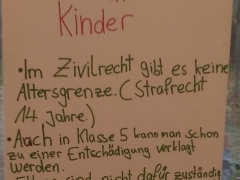 Kinder
• Im Zivilrecht gibt es keine
Altersgrenze. (Strafrecht
14 Jahre.)
• Aach in Klasse 5 kann man schon
zu einer Entschädigung verklagt
werden.
sind nicht dafür zuständig